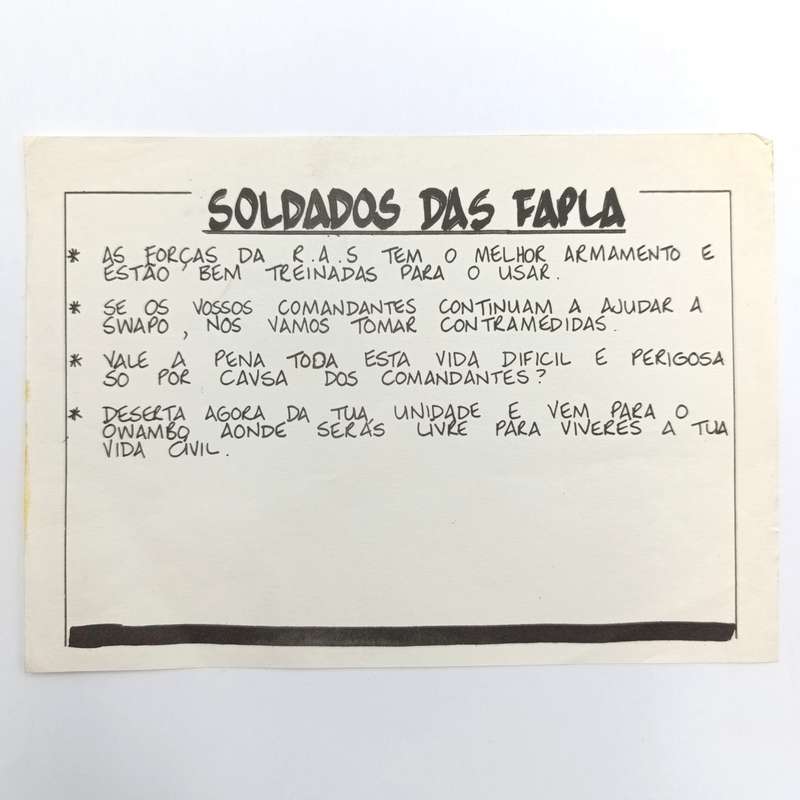 SOLDADOS DAS FAPLA
* AS FORÇAS DA R.A.S TEM O MELHOR ARMAMENTO E
ESTÃO BEM TREINADAS PARA O USAR.
* SE OS VOSSOS COMANDANTES CONTINUAM A AJUDAR A
SWAPO, NOS VAMOS TOMAR CONTRAMEDIDAS.
* VALE A PENA TODA ESTA VIDA DIFICIL E PERIGOSA
SO POR CAVSA DOS COMANDANTES?
* DESERTA AGORA DA TUA UNIDADE E VEM PARA O
OWAMBO AONDE SERAS LIVRE PARA VIVERES A TUA
VIDA CIVIL.